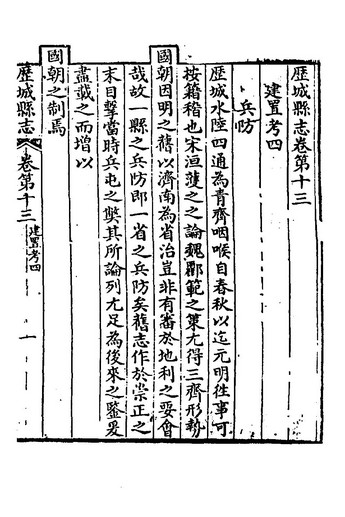 歷城縣志卷第十三
建置考四
兵防
歷城水陸四通為青齊咽喉自春秋以迄元明往事可
按籍稽也宋洄漣之之論魏酈範之策尤得三齊形勢
國朝因明之舊以濟南為省治豈非有審於地利之要會
哉故一縣之兵防即一省之兵防矣舊志作於崇正之
末目擊當時兵屯之獘其所論列尤足為後來之鑒爰
盡載之而增以
國朝之制焉
歷城縣志 卷第十三 建置考四 一